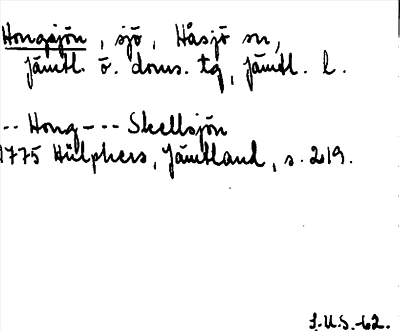 Hongsjön, sjö, Håsjö sn,
Jämtl. ö. doms. tg, Jämtl. l.
-- Hong --- Skellsjön
1775 Hülphers, Jämtland, s. 219.
L.U.S. -62.